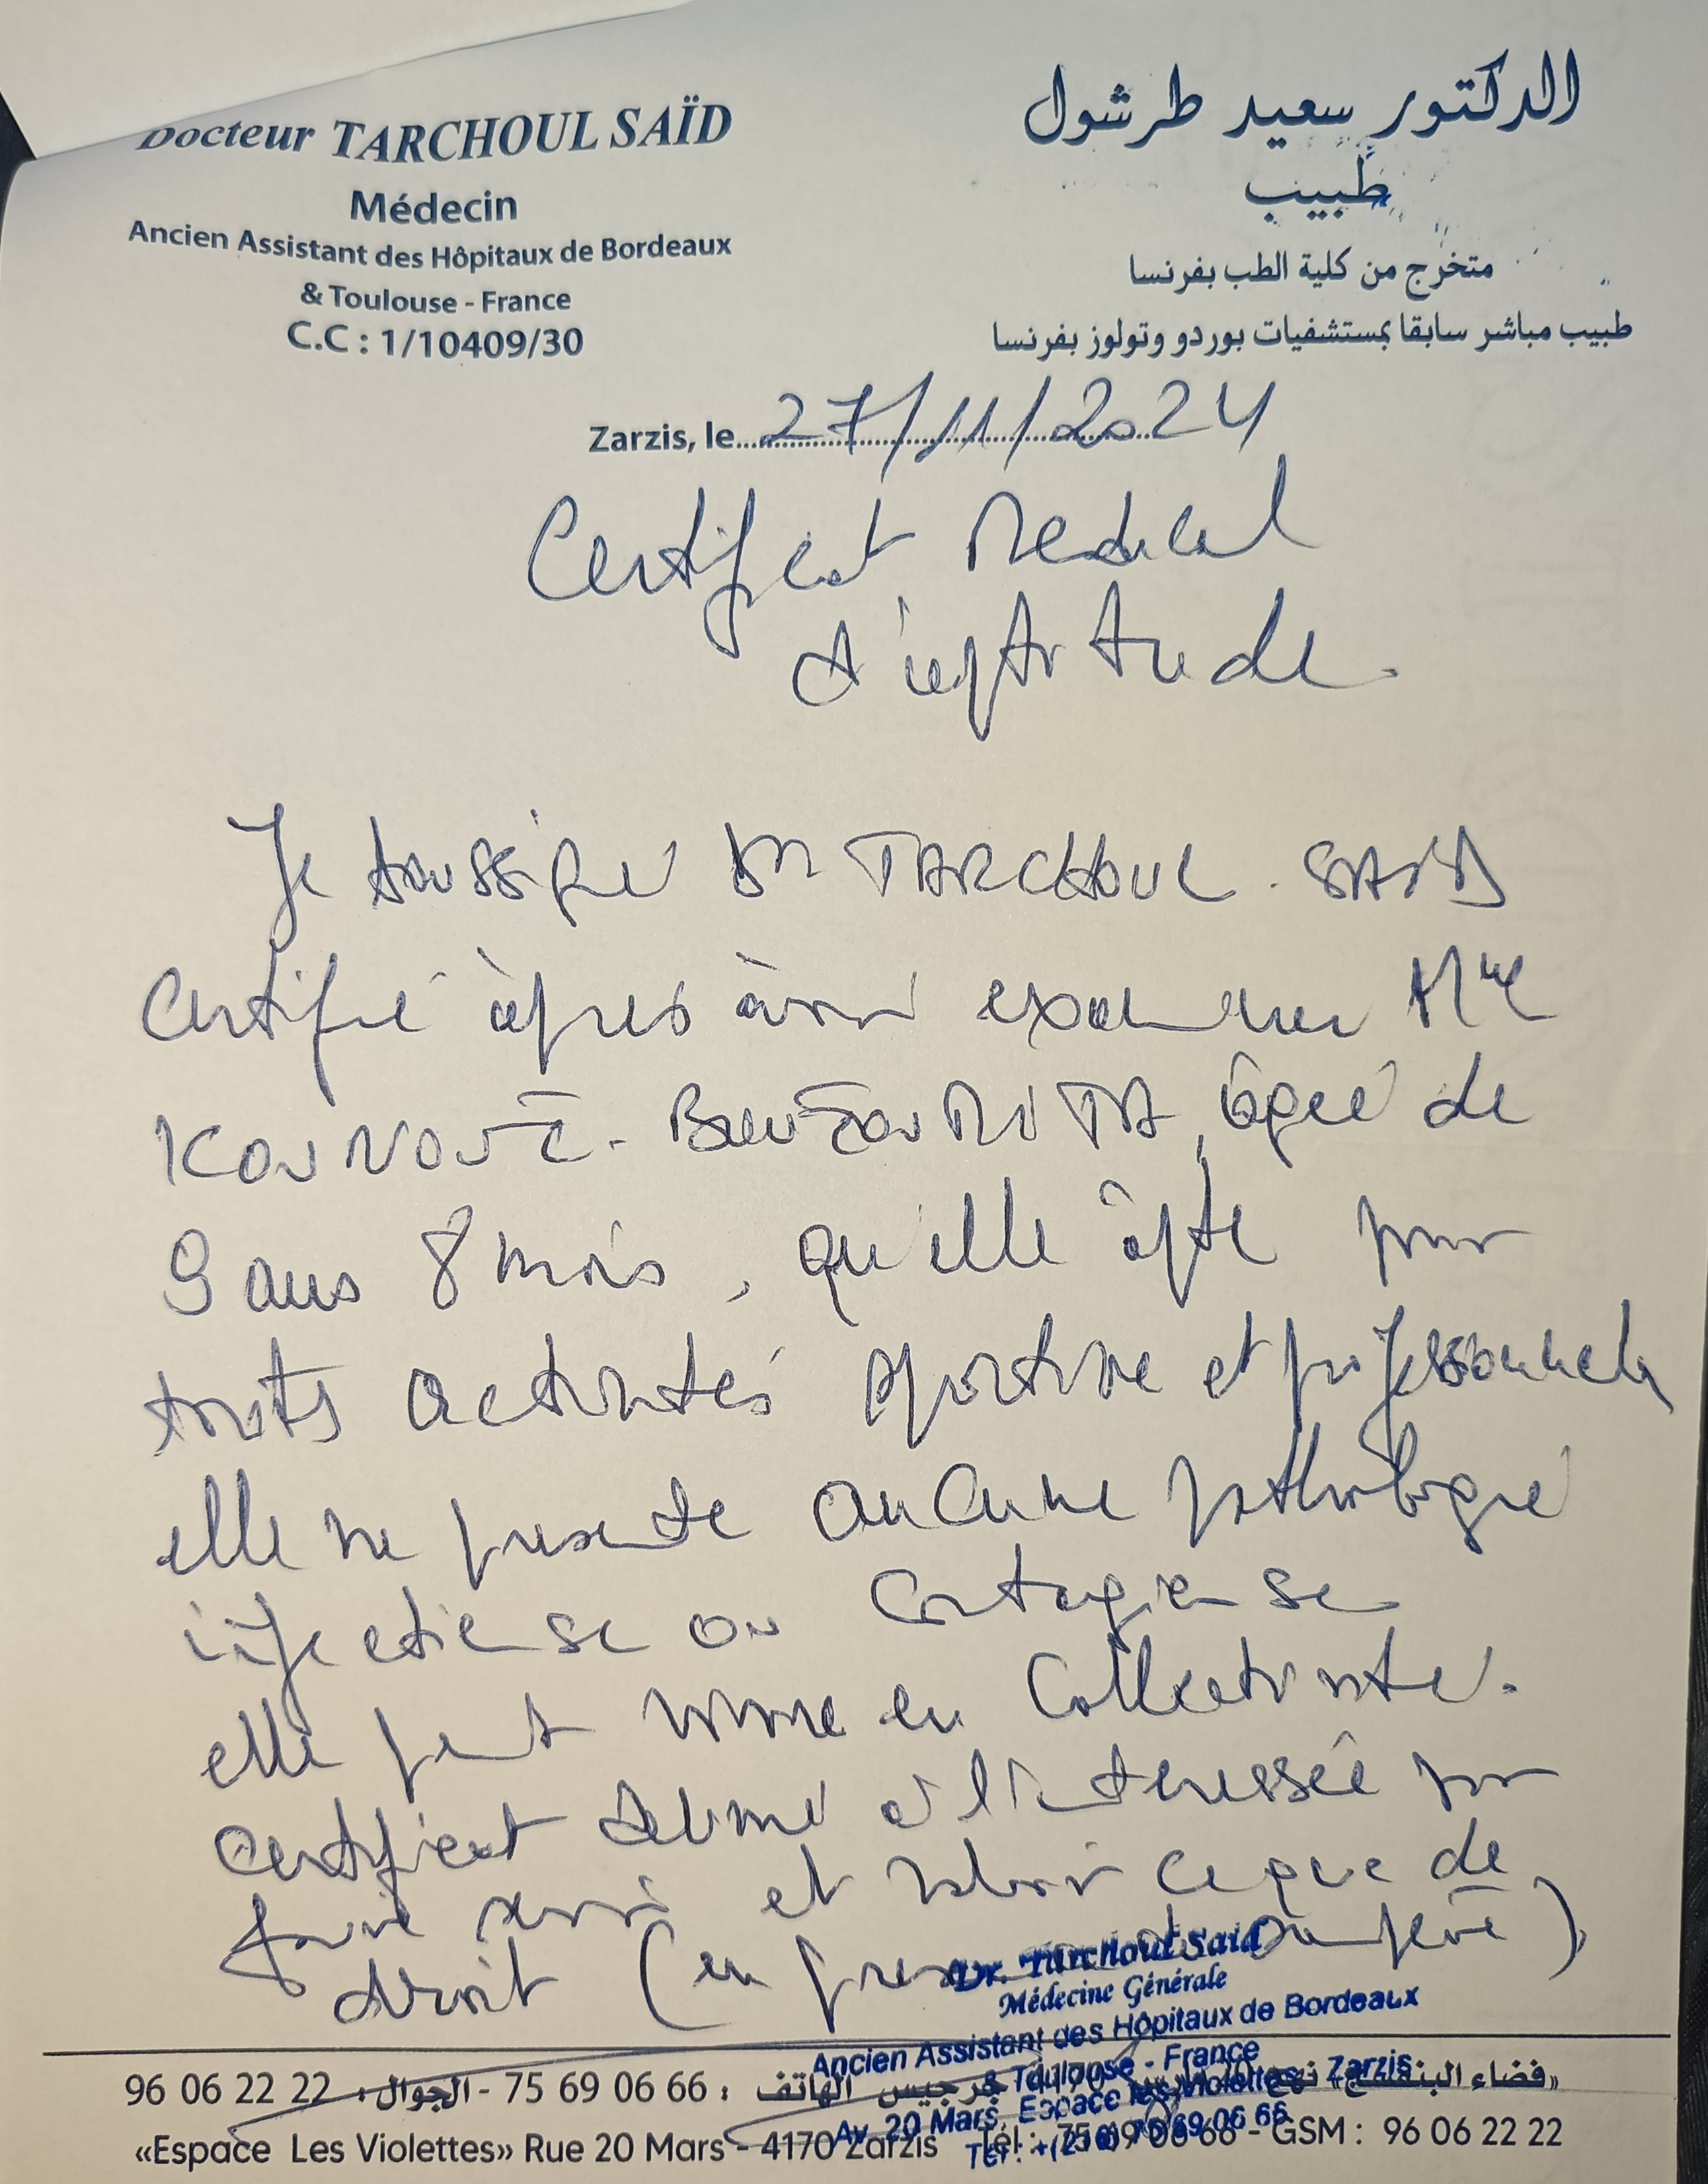 Docteur TARCHOUL SAÏD
Médecin
Ancien Assistant des Hôpitaux de Bordeaux
& Toulouse - France
C.C : 1/10409/30
الدكتور سعيد طرشول
طبيب
متخرج من كلية الطب بفرنسا
طبيب مباشر سابقا بمستشفيات بوردو وتولوز بفرنسا
Zarzis, le 27/11/2024
Certificat Medical
d'aptitude.
Je soussigné Dr TARCHOUL . SAID
Certifie après avoir examiner Mlle
âgée de
9 ans 8 mois, qu'elle apte pour
touts activités sportive et professionnels
elle ne presente aucune pathologie
infectieuse ou contagieuse
elle peut vivre en collectivité.
Certificat délivré à l'interessée pour
faire servir et valoir ce que de
droit (en presence de son père)
Dr. Tarchoul Said
Médecine Générale
Ancien Assistant des Hôpitaux de Bordeaux
& Toulouse - France
Av. 20 Mars, Espace les Violettes - Zarzis
Tél : +(216) 75 69 06 66
«فضاء البنفسج» نهج 20 مارس 4170 جرجيس الهاتف : 75 69 06 66 - الجوال : 96 06 22 22
«Espace Les Violettes» Rue 20 Mars - 4170 Zarzis Tél : 75 69 06 66 - GSM : 96 06 22 22